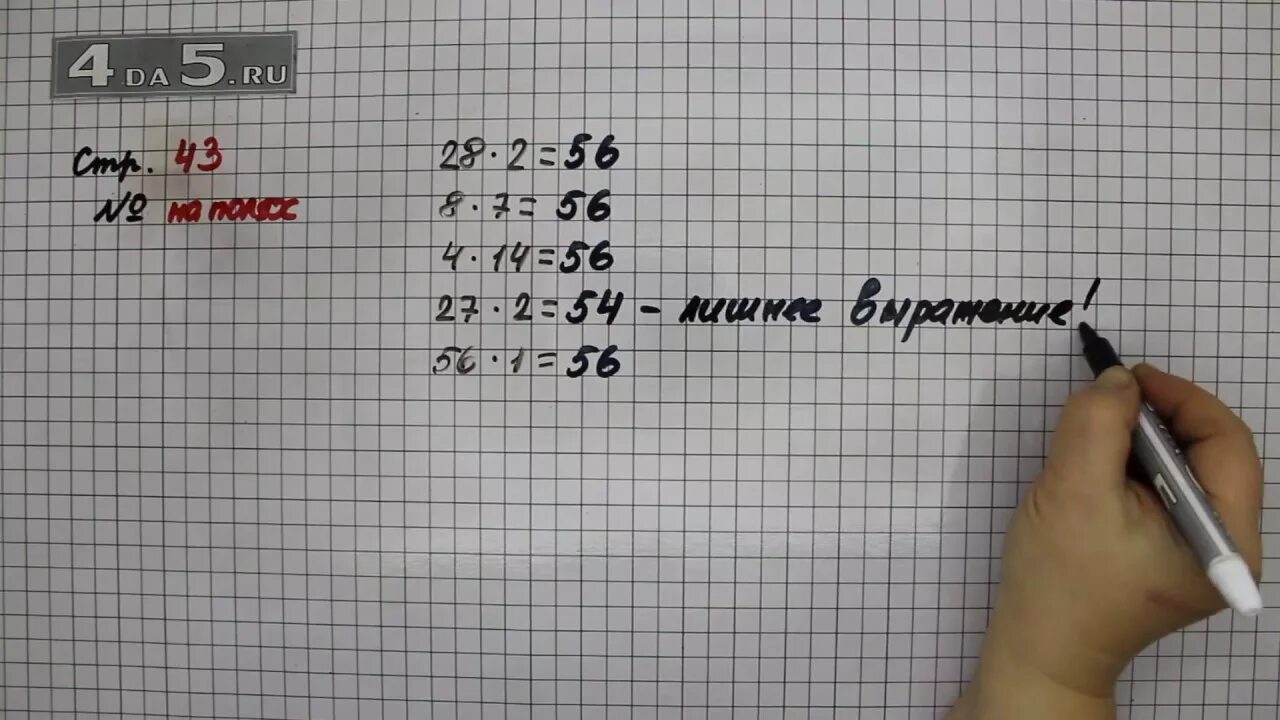 4DA5.RU
Стр. 43
№ на полях
28 · 2 = 56
8 · 7 = 56
4 · 14 = 56
27 · 2 = 54 – лишнее выражение!
56 · 1 = 56